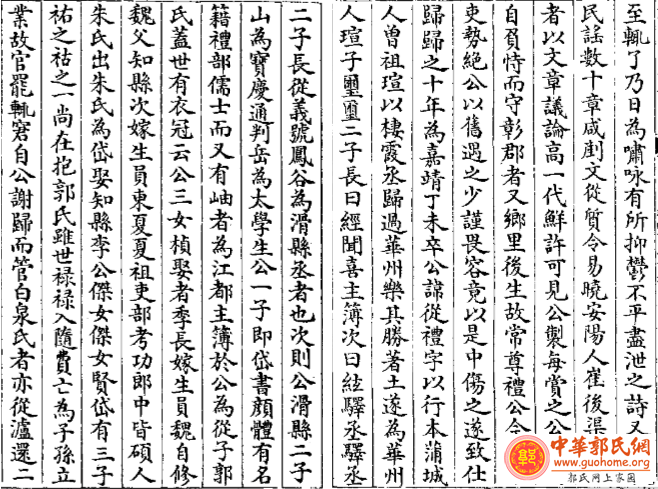 至輒了乃日為嘯咏有所抑鬱不平盡泄之詩又
民謡數十章咸剷文從質令易曉安陽人崔後渠
者以文章議論高一代鮮許可見公製每賞之公
自負恃而守彰郡者又鄉里後生故常尊禮公今
吏勢絕公以舊遇之少謹畏容竟以是中傷之遂致仕
歸歸之十年為嘉靖丁未卒公諱從禮字以行本蒲城
人曽祖瑄以棲霞丞歸過華州樂其勝著土遂為華州
人瑄子璽璽二子長曰經聞喜主簿次曰絃驛丞驛丞
二子長從義號鳳谷為滑縣丞者也次則公滑縣二子
山為寶慶通判岳為太學生公一子即岱書顔體有名
籍禮部儒士而又有岫者為江都主簿於公為從子郭
氏蓋世有衣冠云公三女楨娶者季長嫁生員魏自修
魏父知縣次嫁生員東夏夏祖吏部考功郎中皆碩人
朱氏出朱氏為岱娶知縣李公傑女傑女賢岱有三子
祐之祜之一尚在抱郭氏雖世禄禄入隨費亡為子孫立
業故官罷輒窘自公謝歸而管白泉氏者亦從瀘還二
郭
中華郭氏網
www.guohome.org
郭氏网上家园